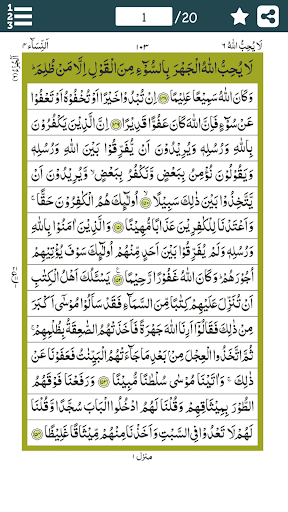 1
2
3
1 /20
لَا يُحِبُّ اللهُ ٦
١٠٣
اَلنِّسَآء ٤
لَا يُحِبُّ اللّٰهُ الْجَهْرَ بِالسُّوْٓءِ مِنَ الْقَوْلِ اِلَّا مَنْ ظُلِمَ ؕ
وَكَانَ اللّٰهُ سَمِيْعًا عَلِيْمًا ﴿۱۴۸﴾ اِنْ تُبْدُوْا خَيْرًا اَوْ تُخْفُوْهُ اَوْ تَعْفُوْا
عَنْ سُوْٓءٍ فَاِنَّ اللّٰهَ كَانَ عَفُوًّا قَدِيْرًا ﴿۱۴۹﴾ اِنَّ الَّذِيْنَ يَكْفُرُوْنَ
بِاللّٰهِ وَرُسُلِهٖ وَيُرِيْدُوْنَ اَنْ يُّفَرِّقُوْا بَيْنَ اللّٰهِ وَرُسُلِهٖ
وَيَقُوْلُوْنَ نُؤْمِنُ بِبَعْضٍ وَّنَكْفُرُ بِبَعْضٍ ۙ وَّيُرِيْدُوْنَ اَنْ
يَّتَّخِذُوْا بَيْنَ ذٰلِكَ سَبِيْلًا ﴿۱۵۰﴾ اُولٰٓئِكَ هُمُ الْكٰفِرُوْنَ حَقًّا ۚ
وَاَعْتَدْنَا لِلْكٰفِرِيْنَ عَذَابًا مُّهِيْنًا ﴿۱۵۱﴾ وَالَّذِيْنَ اٰمَنُوْا بِاللّٰهِ
وَرُسُلِهٖ وَلَمْ يُفَرِّقُوْا بَيْنَ اَحَدٍ مِّنْهُمْ اُولٰٓئِكَ سَوْفَ يُؤْتِيْهِمْ
اُجُوْرَهُمْ ؕ وَكَانَ اللّٰهُ غَفُوْرًا رَّحِيْمًا ﴿۱۵۲﴾ يَسْـَٔلُكَ اَهْلُ الْكِتٰبِ
اَنْ تُنَزِّلَ عَلَيْهِمْ كِتٰبًا مِّنَ السَّمَآءِ فَقَدْ سَاَلُوْا مُوْسٰٓى اَكْبَرَ
مِنْ ذٰلِكَ فَقَالُوْٓا اَرِنَا اللّٰهَ جَهْرَةً فَاَخَذَتْهُمُ الصّٰعِقَةُ بِظُلْمِهِمْ ۚ
ثُمَّ اتَّخَذُوا الْعِجْلَ مِنْۢ بَعْدِ مَا جَآءَتْهُمُ الْبَيِّنٰتُ فَعَفَوْنَا عَنْ
ذٰلِكَ ۚ وَاٰتَيْنَا مُوْسٰى سُلْطٰنًا مُّبِيْنًا ﴿۱۵۳﴾ وَرَفَعْنَا فَوْقَهُمُ
الطُّوْرَ بِمِيْثَاقِهِمْ وَقُلْنَا لَهُمُ ادْخُلُوا الْبَابَ سُجَّدًا وَّقُلْنَا
لَهُمْ لَا تَعْدُوْا فِى السَّبْتِ وَاَخَذْنَا مِنْهُمْ مِّيْثَاقًا غَلِيْظًا ﴿۱۵۴﴾
منزل ١